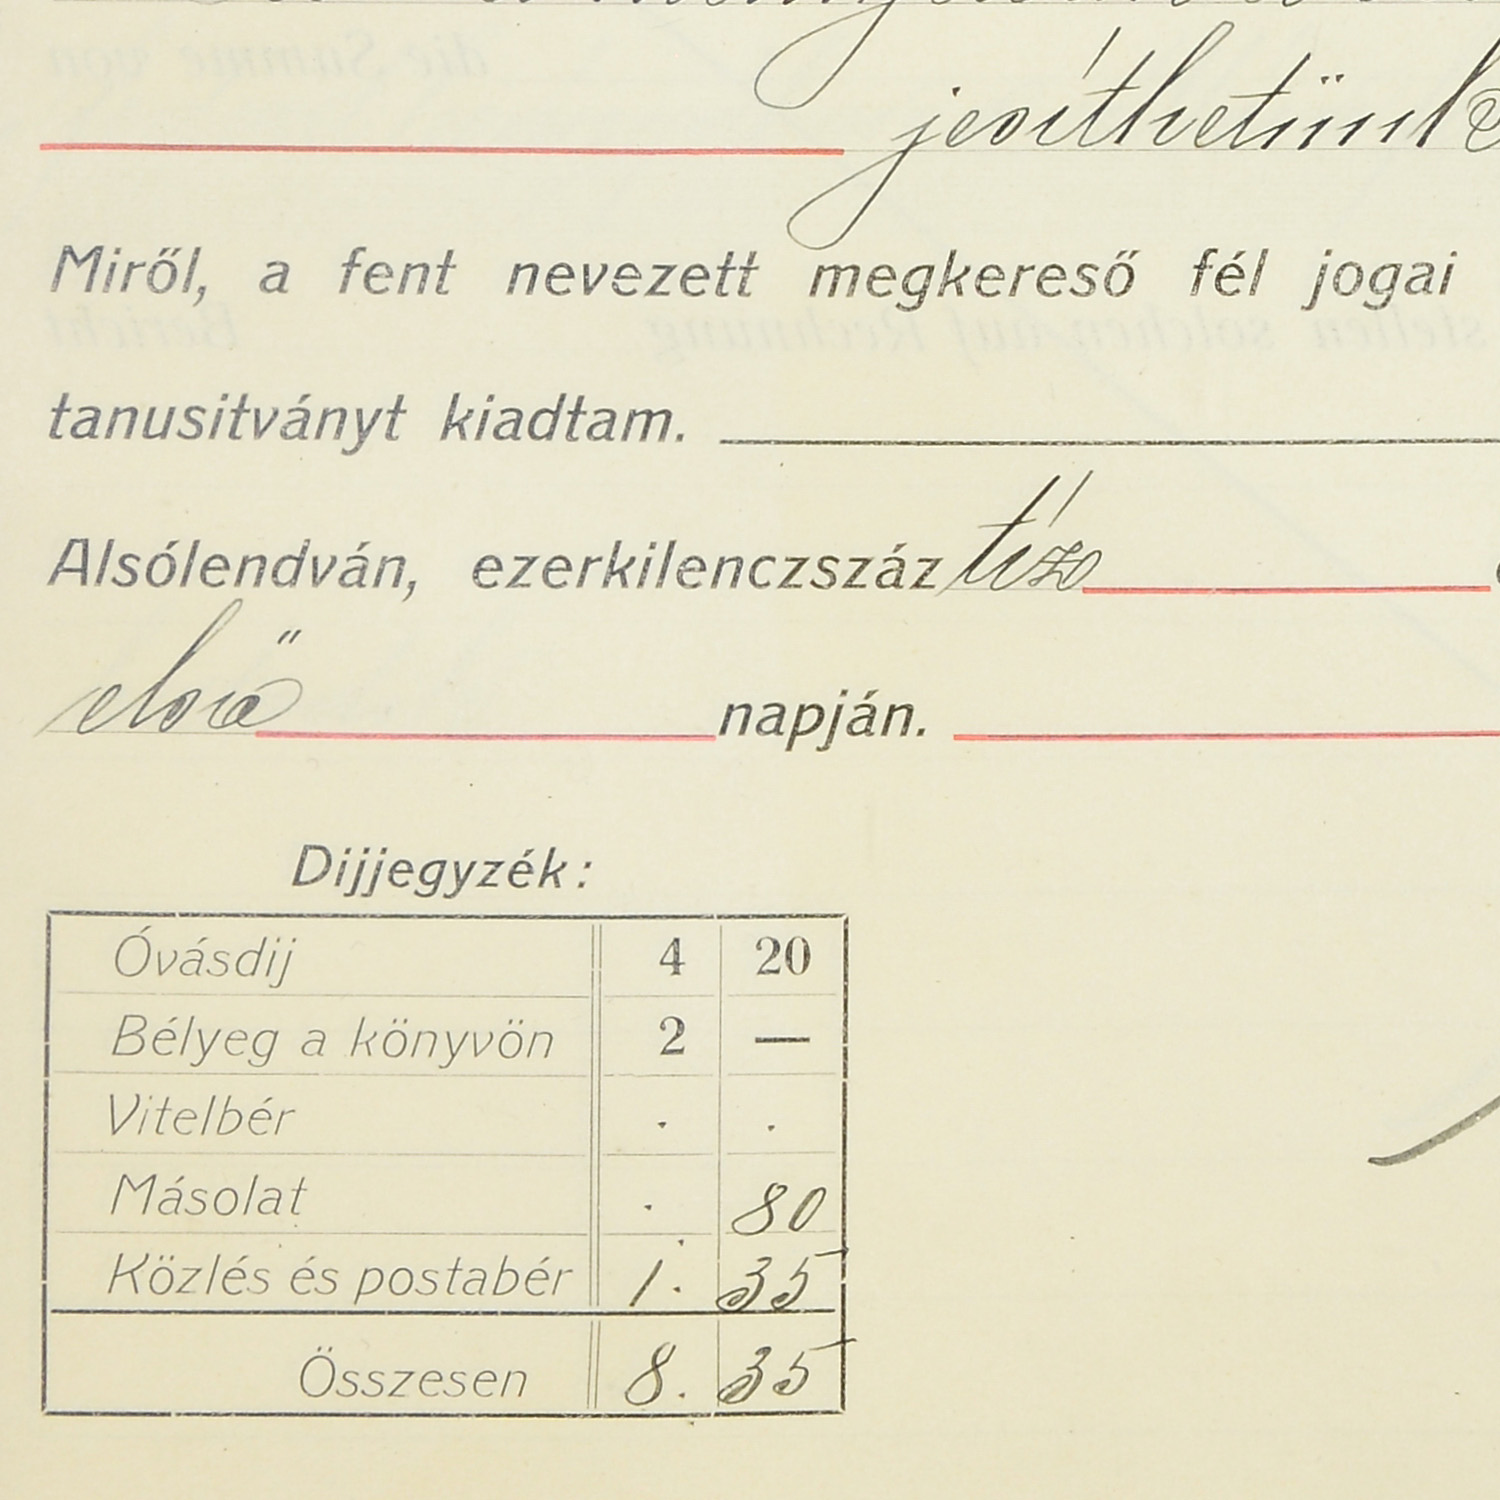 jesíthetünk
Miről, a fent nevezett megkereső fél jogai
tanusitványt kiadtam.
Alsólendván, ezerkilenczszáz tíz
első napján.
Dijjegyzék:
Óvásdij 4 20
Bélyeg a könyvön 2 —
Vitelbér . .
Másolat . 80
Közlés és postabér 1. 35
Összesen 8. 35